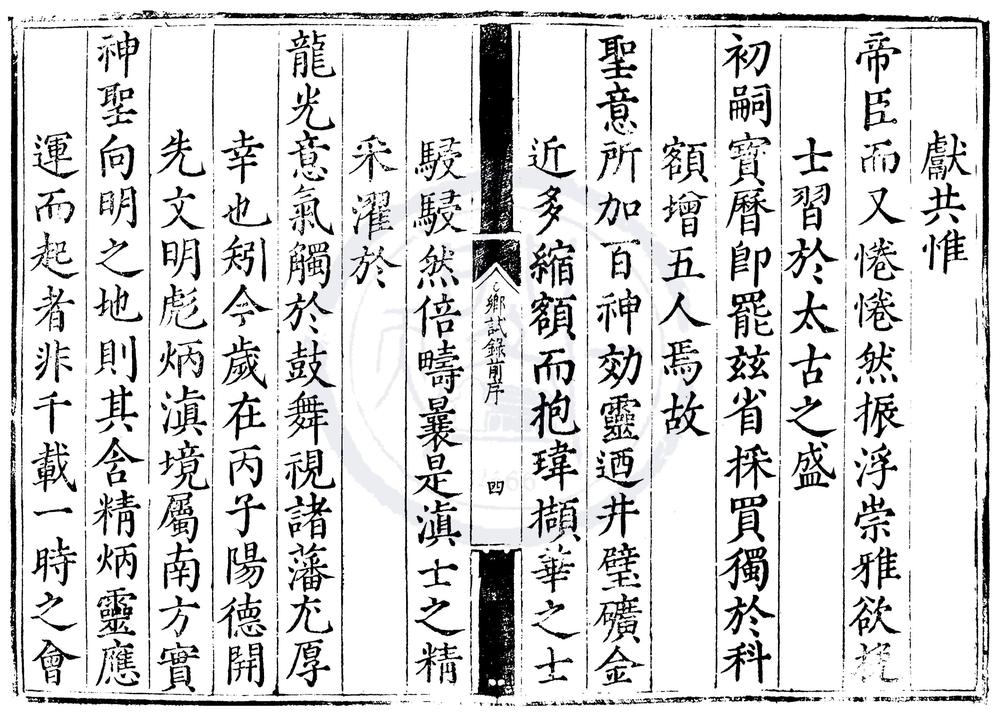 獻共惟
帝臣而又惓惓然振浮崇雅欲挽
士習於太古之盛
初嗣寶曆卽罷玆省採買獨於科
額增五人焉故
聖意所加百神効靈迺井璧礦金
近多縮額而抱瑋擷華之士
鄉試錄前序
四
駸駸然倍疇曩是滇士之精
采濯於
龍光意氣觸於鼓舞視諸藩尤厚
幸也矧今歲在丙子陽德開
先文明彪炳滇境屬南方實
神聖向明之地則其含精炳靈應
運而起者非千載一時之會